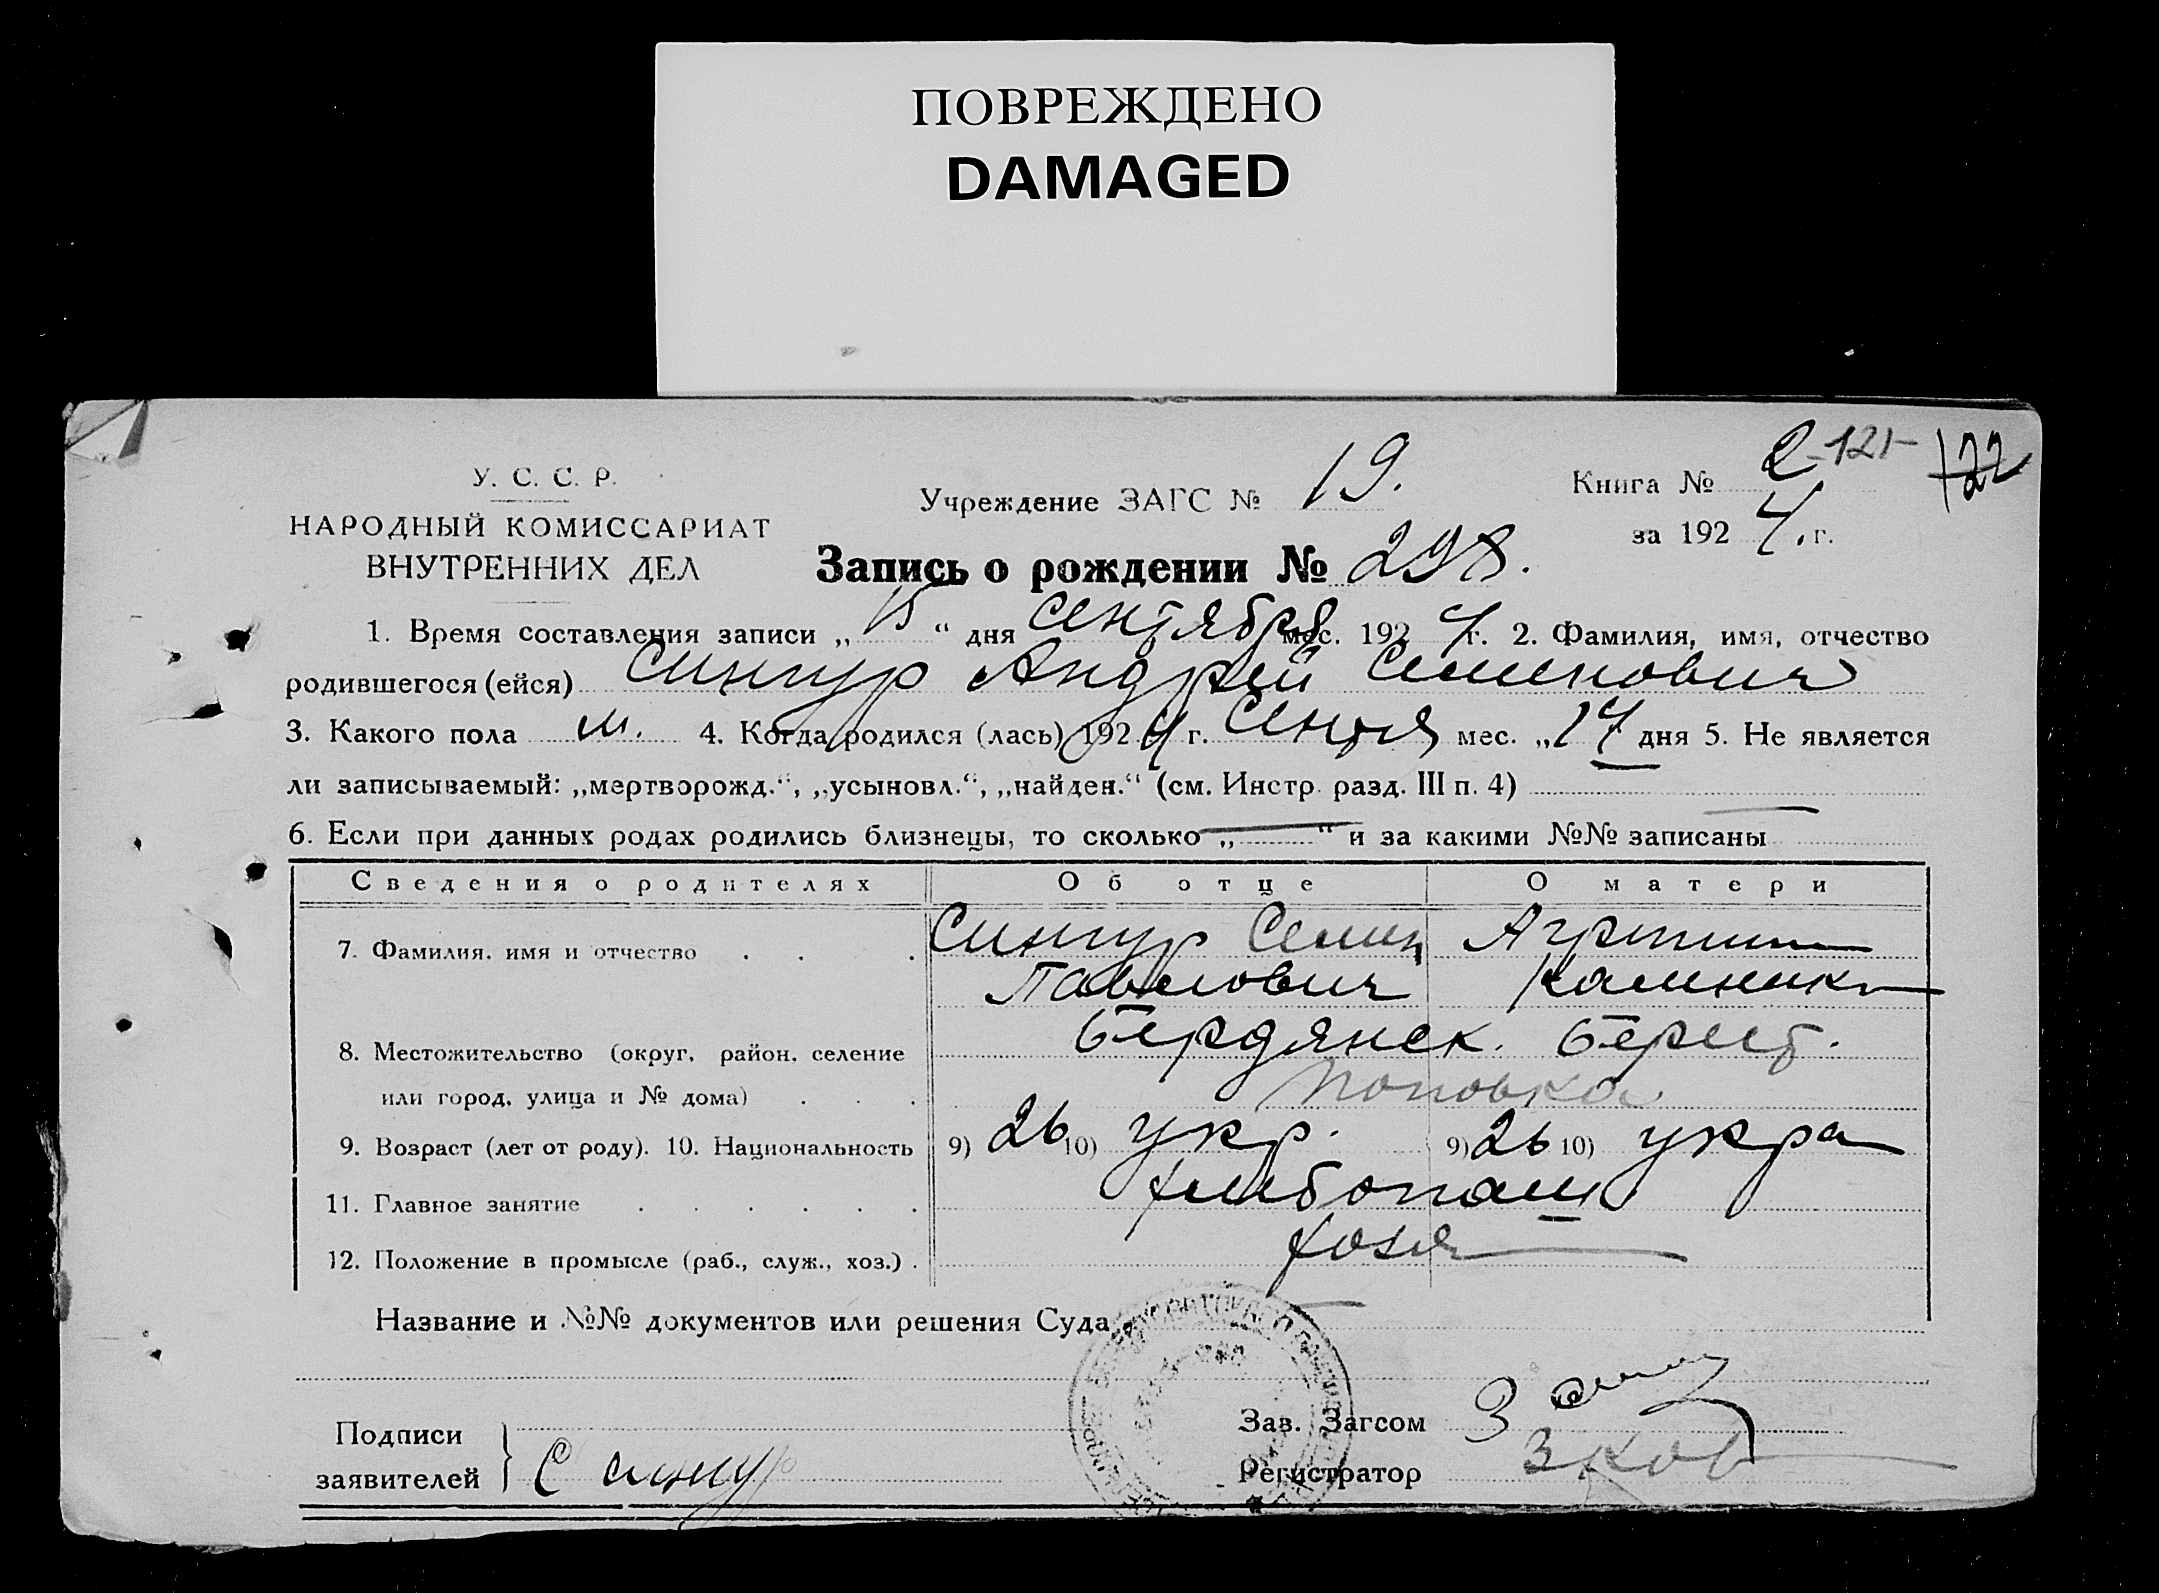 ПОВРЕЖДЕНО
DAMAGED
У. С. С. Р.
НАРОДНЫЙ КОМИССАРИАТ
ВНУТРЕННИХ ДЕЛ
Учреждение ЗАГС № 19.
Книга № 2 -121- 122
за 1924 г.
Запись о рождении № 298.
1. Время составления записи „15“ дня сентября мес. 1924 г. 2. Фамилия, имя, отчество
родившегося (ейся) Сингур Андрей Семенович
3. Какого пола м. 4. Когда родился (лась) 1924 г. Сентя мес. „14 дня 5. Не является
ли записываемый: „мертворожд.“, „усыновл.“, „найден.“ (см. Инстр. разд. III п. 4)
6. Если при данных родах родились близнецы, то сколько „—“ и за какими №№ записаны
Сведения о родителях Об отце О матери
7. Фамилия, имя и отчество Сингур Семен
Павлович
8. Местожительство (округ, район, селение Бердянск. Берест.
или город, улица и № дома) Поповка
9. Возраст (лет от роду). 10. Национальность 9) 26 10) укр. 9) 26 10) укра
11. Главное занятие хлебопаш
12. Положение в промысле (раб., служ., хоз.) хозя
Название и №№ документов или решения Суда
Зав. Загсом
Подписи
заявителей С сингур
Регистратор